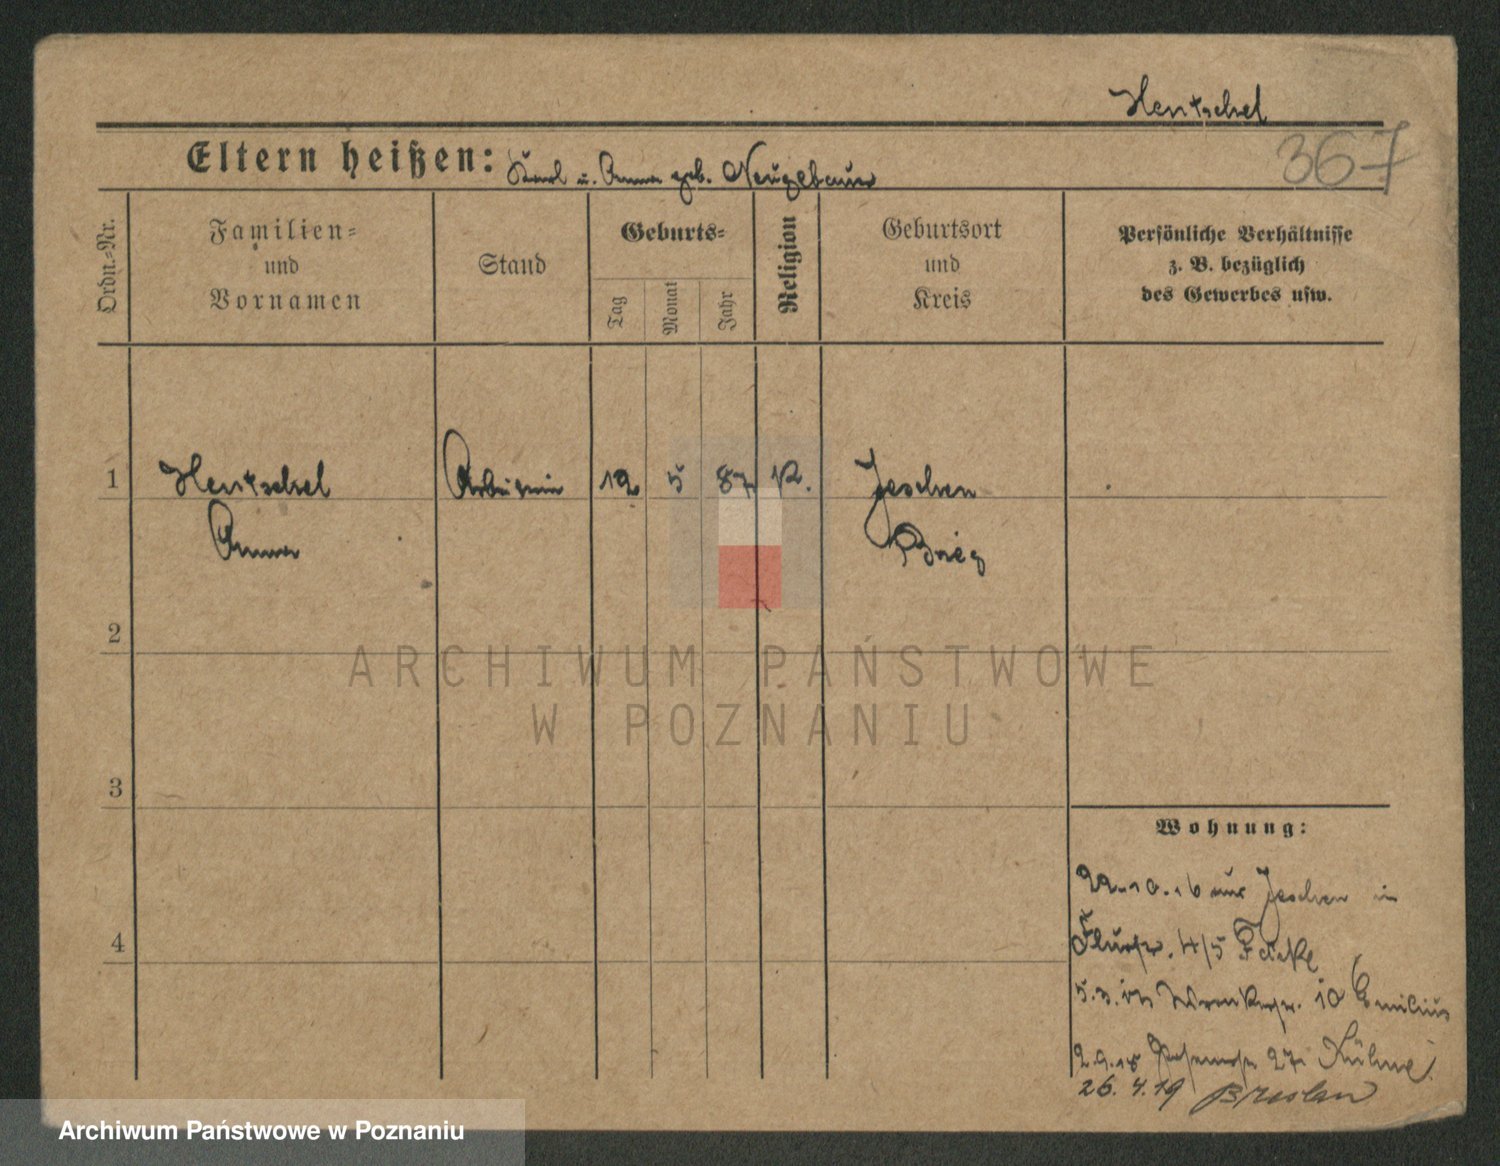 Hentschel
367
Eltern heißen: Karl u. Anna geb. Neugebauer
Ordn.-Nr.
Familien-
und
Vornamen
Stand
Geburts-
Tag
Monat
Jahr
Religion
Geburtsort
und
Kreis
Persönliche Verhältnisse
z. B. bezüglich
des Gewerbes usw.
1 Hentschel Arbeiterin 12 5 87 K. Jeschen
Anna Brieg
2
3
4
Wohnung:
22.10.16 aus Jeschen in
4/5
10 Emilius
2.9.18 27 Kühne
26.4.19 Breslau
ARCHIWUM PAŃSTWOWE
W POZNANIU
Archiwum Państwowe w Poznaniu